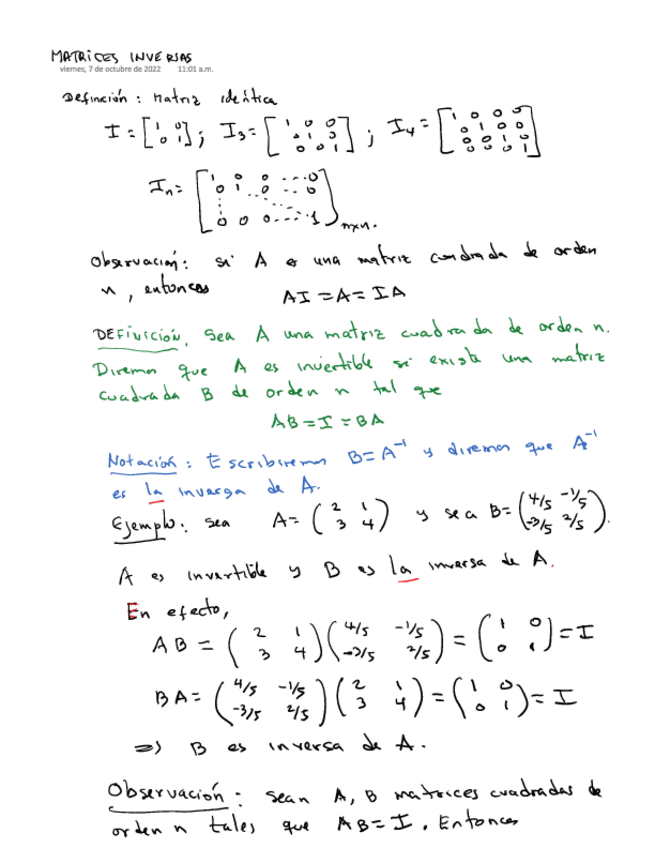 MATRICES INVERSAS
viernes, 7 de octubre de 2022 11:01 a.m.
Definción: Matriz idéntica
I = [1 0; 0 1]; I₃ = [1 0 0; 0 1 0; 0 0 1]; I₄ = [1 0 0 0; 0 1 0 0; 0 0 1 0; 0 0 0 1]
Iₙ = [1 0 0 ... 0; 0 1 0 ... 0; ⋮ ⋱ ⋮; 0 0 0 ... 1] n×n.
Observación: si A es una matriz cuadrada de orden
n, entonces
AI = A = IA
DEFINICIÓN. Sea A una matriz cuadrada de orden n.
Diremos que A es invertible si existe una matriz
cuadrada B de orden n tal que
AB = I = BA
Notación: Escribiremos B = A⁻¹ y diremos que A⁻¹
es la inversa de A.
Ejemplo: sea A = (2 1; 3 4) y sea B = (4/5 -1/5; -3/5 2/5).
A es invertible y B es la inversa de A.
En efecto,
AB = (2 1; 3 4)(4/5 -1/5; -3/5 2/5) = (1 0; 0 1) = I
BA = (4/5 -1/5; -3/5 2/5)(2 1; 3 4) = (1 0; 0 1) = I
⇒ B es inversa de A.
Observación: Sean A, B matrices cuadradas de
orden n tales que AB = I. Entonces